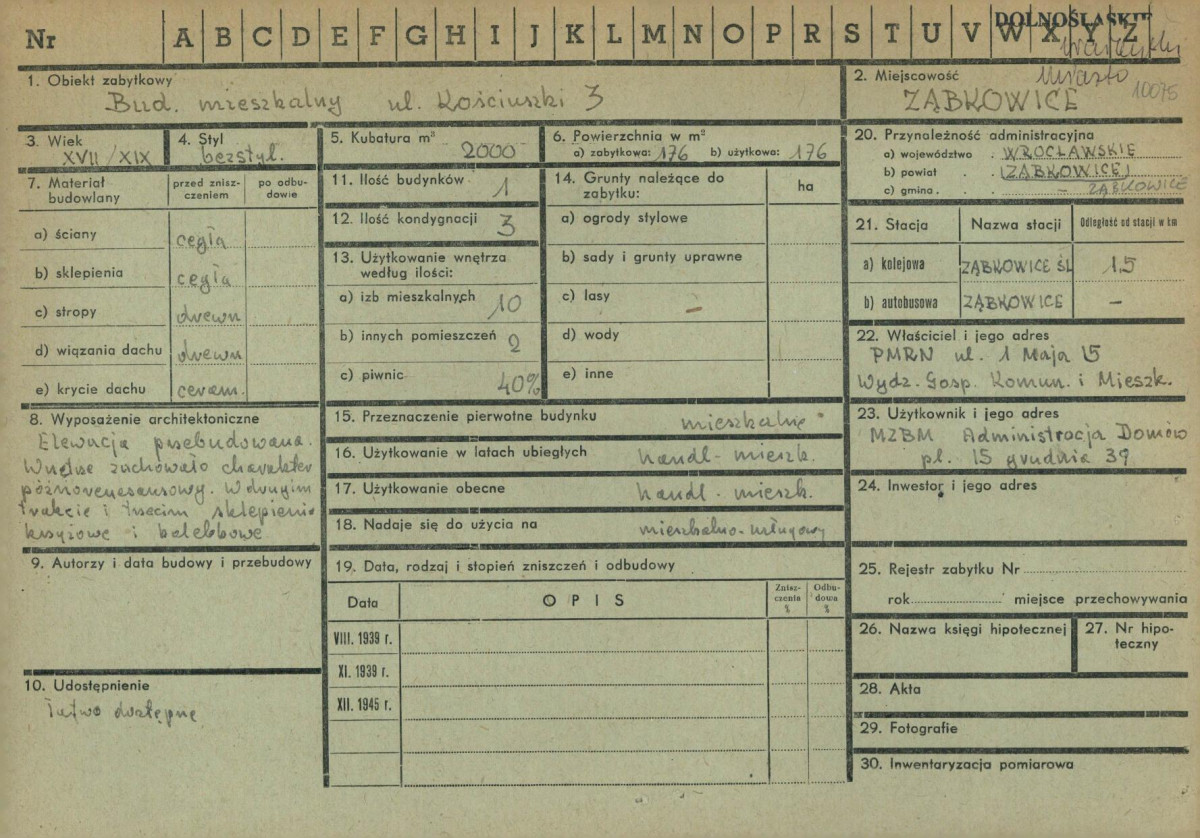 Nr A B C D E F G H I J K L M N O P R S T U V W X Y Z
DOLNOŚLĄSKIE
1. Obiekt zabytkowy
Bud. mieszkalny ul. Kościuszki 3
2. Miejscowość
Miasto 10075
ZĄBKOWICE
3. Wiek
XVII/XIX
4. Styl
bezstyl.
5. Kubatura m³
2000
6. Powierzchnia w m²
a) zabytkowa: 176 b) użytkowa: 176
7. Materiał budowlany
przed znisz-
czeniem
po odbu-
dowie
a) ściany cegła
b) sklepienia cegła
c) stropy drewn
d) wiązania dachu drewn
e) krycie dachu ceram.
8. Wyposażenie architektoniczne
Elewacja przebudowana.
Wnętrze zachowało charakter
późnorenesansowy. W drugim
trakcie i trzecim sklepienia
krzyżowe i kolebkowe
9. Autorzy i data budowy i przebudowy
10. Udostępnienie
łatwo dostępne
11. Ilość budynków 1
12. Ilość kondygnacji 3
13. Użytkowanie wnętrza
według ilości:
a) izb mieszkalnych 10
b) innych pomieszczeń 2
c) piwnic 40%
14. Grunty należące do
zabytku:
ha
a) ogrody stylowe
b) sady i grunty uprawne
c) lasy –
d) wody
e) inne
15. Przeznaczenie pierwotne budynku mieszkalne
16. Użytkowanie w latach ubiegłych handl-mieszk.
17. Użytkowanie obecne handl.-mieszk.
18. Nadaje się do użycia na mieszkalno-usługowy
19. Data, rodzaj i stopień zniszczeń i odbudowy
Data OPIS
Znisz-
czenia
%
Odbu-
dowa
%
VIII. 1939 r.
XI. 1939 r.
XII. 1945 r.
20. Przynależność administracyjna
a) województwo . WROCŁAWSKIE
b) powiat . . (ZĄBKOWICE)
c) gmina . . – ZĄBKOWICE
21. Stacja Nazwa stacji Odległość od stacji w km
a) kolejowa ZĄBKOWICE ŚL 1,5
b) autobusowa ZĄBKOWICE –
22. Właściciel i jego adres
PMRN ul. 1 Maja 15
Wydz. Gosp. Komun. i Mieszk.
23. Użytkownik i jego adres
MZBM Administracja Domów
pl. 15 grudnia 39
24. Inwestor i jego adres
25. Rejestr zabytku Nr
rok miejsce przechowywania
26. Nazwa księgi hipotecznej
27. Nr hipo-
teczny
28. Akta
29. Fotografie
30. Inwentaryzacja pomiarowa